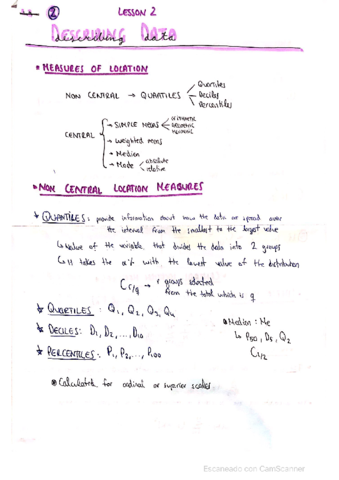 2
LESSON 2
DESCRIBING DATA
* MEASURES OF LOCATION
NON CENTRAL → QUANTILES
Quartiles
Deciles
Percentiles
CENTRAL
→ SIMPLE MEANS
ARITHMETIC
→ Weighted means
→ Median
→ Mode
absolute
relative
* NON CENTRAL LOCATION MEASURES
* QUANTILES: provide information about how the data are spread over
the interval from the smallest to the largest value
↳ Value of the variable that divides the data into 2 groups
↳ It takes the α% with the lowest value of the distribution
C r/q → r groups selected
from the total which is q
* QUARTILES: Q1, Q2, Q3, Q4
* DECILES: D1, D2, ..., D10
* PERCENTILES: P1, P2, ..., P100
Median: Me
↳ P50, D5, Q2
C1/2
for ordinal or superior scales
Escaneado con CamScanner